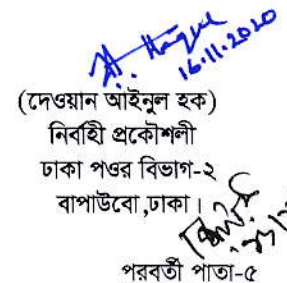 16.11.2020
(দেওয়ান আইনুল হক)
নির্বাহী প্রকৌশলী
ঢাকা পওর বিভাগ-২
বাপাউবো ,ঢাকা।
পরবর্তী পাতা-৫